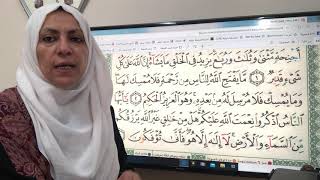 أَجْنِحَةٍ مَّثْنَىٰ وَثُلَٰثَ وَرُبَٰعَ يَزِيدُ فِى ٱلْخَلْقِ مَا يَشَآءُ إِنَّ ٱللَّهَ عَلَىٰ كُلِّ
شَىْءٍ قَدِيرٌ ١ مَّا يَفْتَحِ ٱللَّهُ لِلنَّاسِ مِن رَّحْمَةٍ فَلَا مُمْسِكَ لَهَا
وَمَا يُمْسِكْ فَلَا مُرْسِلَ لَهُۥ مِنۢ بَعْدِهِۦ وَهُوَ ٱلْعَزِيزُ ٱلْحَكِيمُ ٢ يَٰٓأَيُّهَا
ٱلنَّاسُ ٱذْكُرُوا۟ نِعْمَتَ ٱللَّهِ عَلَيْكُمْ هَلْ مِنْ خَٰلِقٍ غَيْرُ ٱللَّهِ يَرْزُقُكُم
مِّنَ ٱلسَّمَآءِ وَٱلْأَرْضِ لَآ إِلَٰهَ إِلَّا هُوَ فَأَنَّىٰ تُؤْفَكُونَ